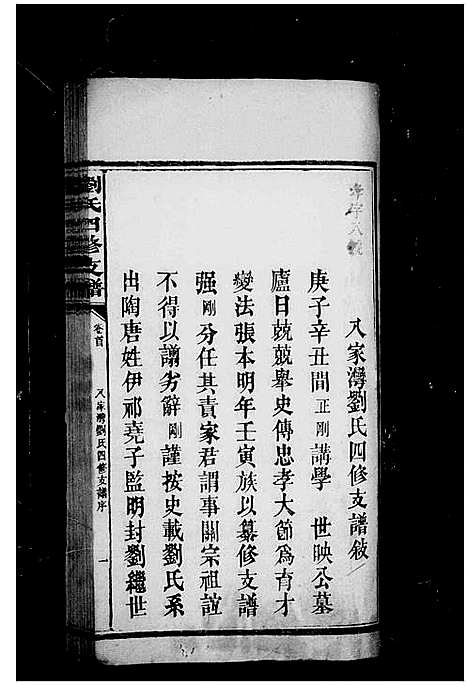 八家灣劉氏四修支譜敍
庚子辛丑間正剛講學 世映公墓
廬日兢兢舉史傳忠孝大節爲育才
變法張本明年壬寅族以纂修支譜
强剛分任其責家君謂事關宗祖誼
不得以譾劣辭剛謹按史載劉氏系
出陶唐姓伊祁堯子監明封劉繼世
劉氏四修支譜
卷首
八家灣劉氏四修支譜序
一